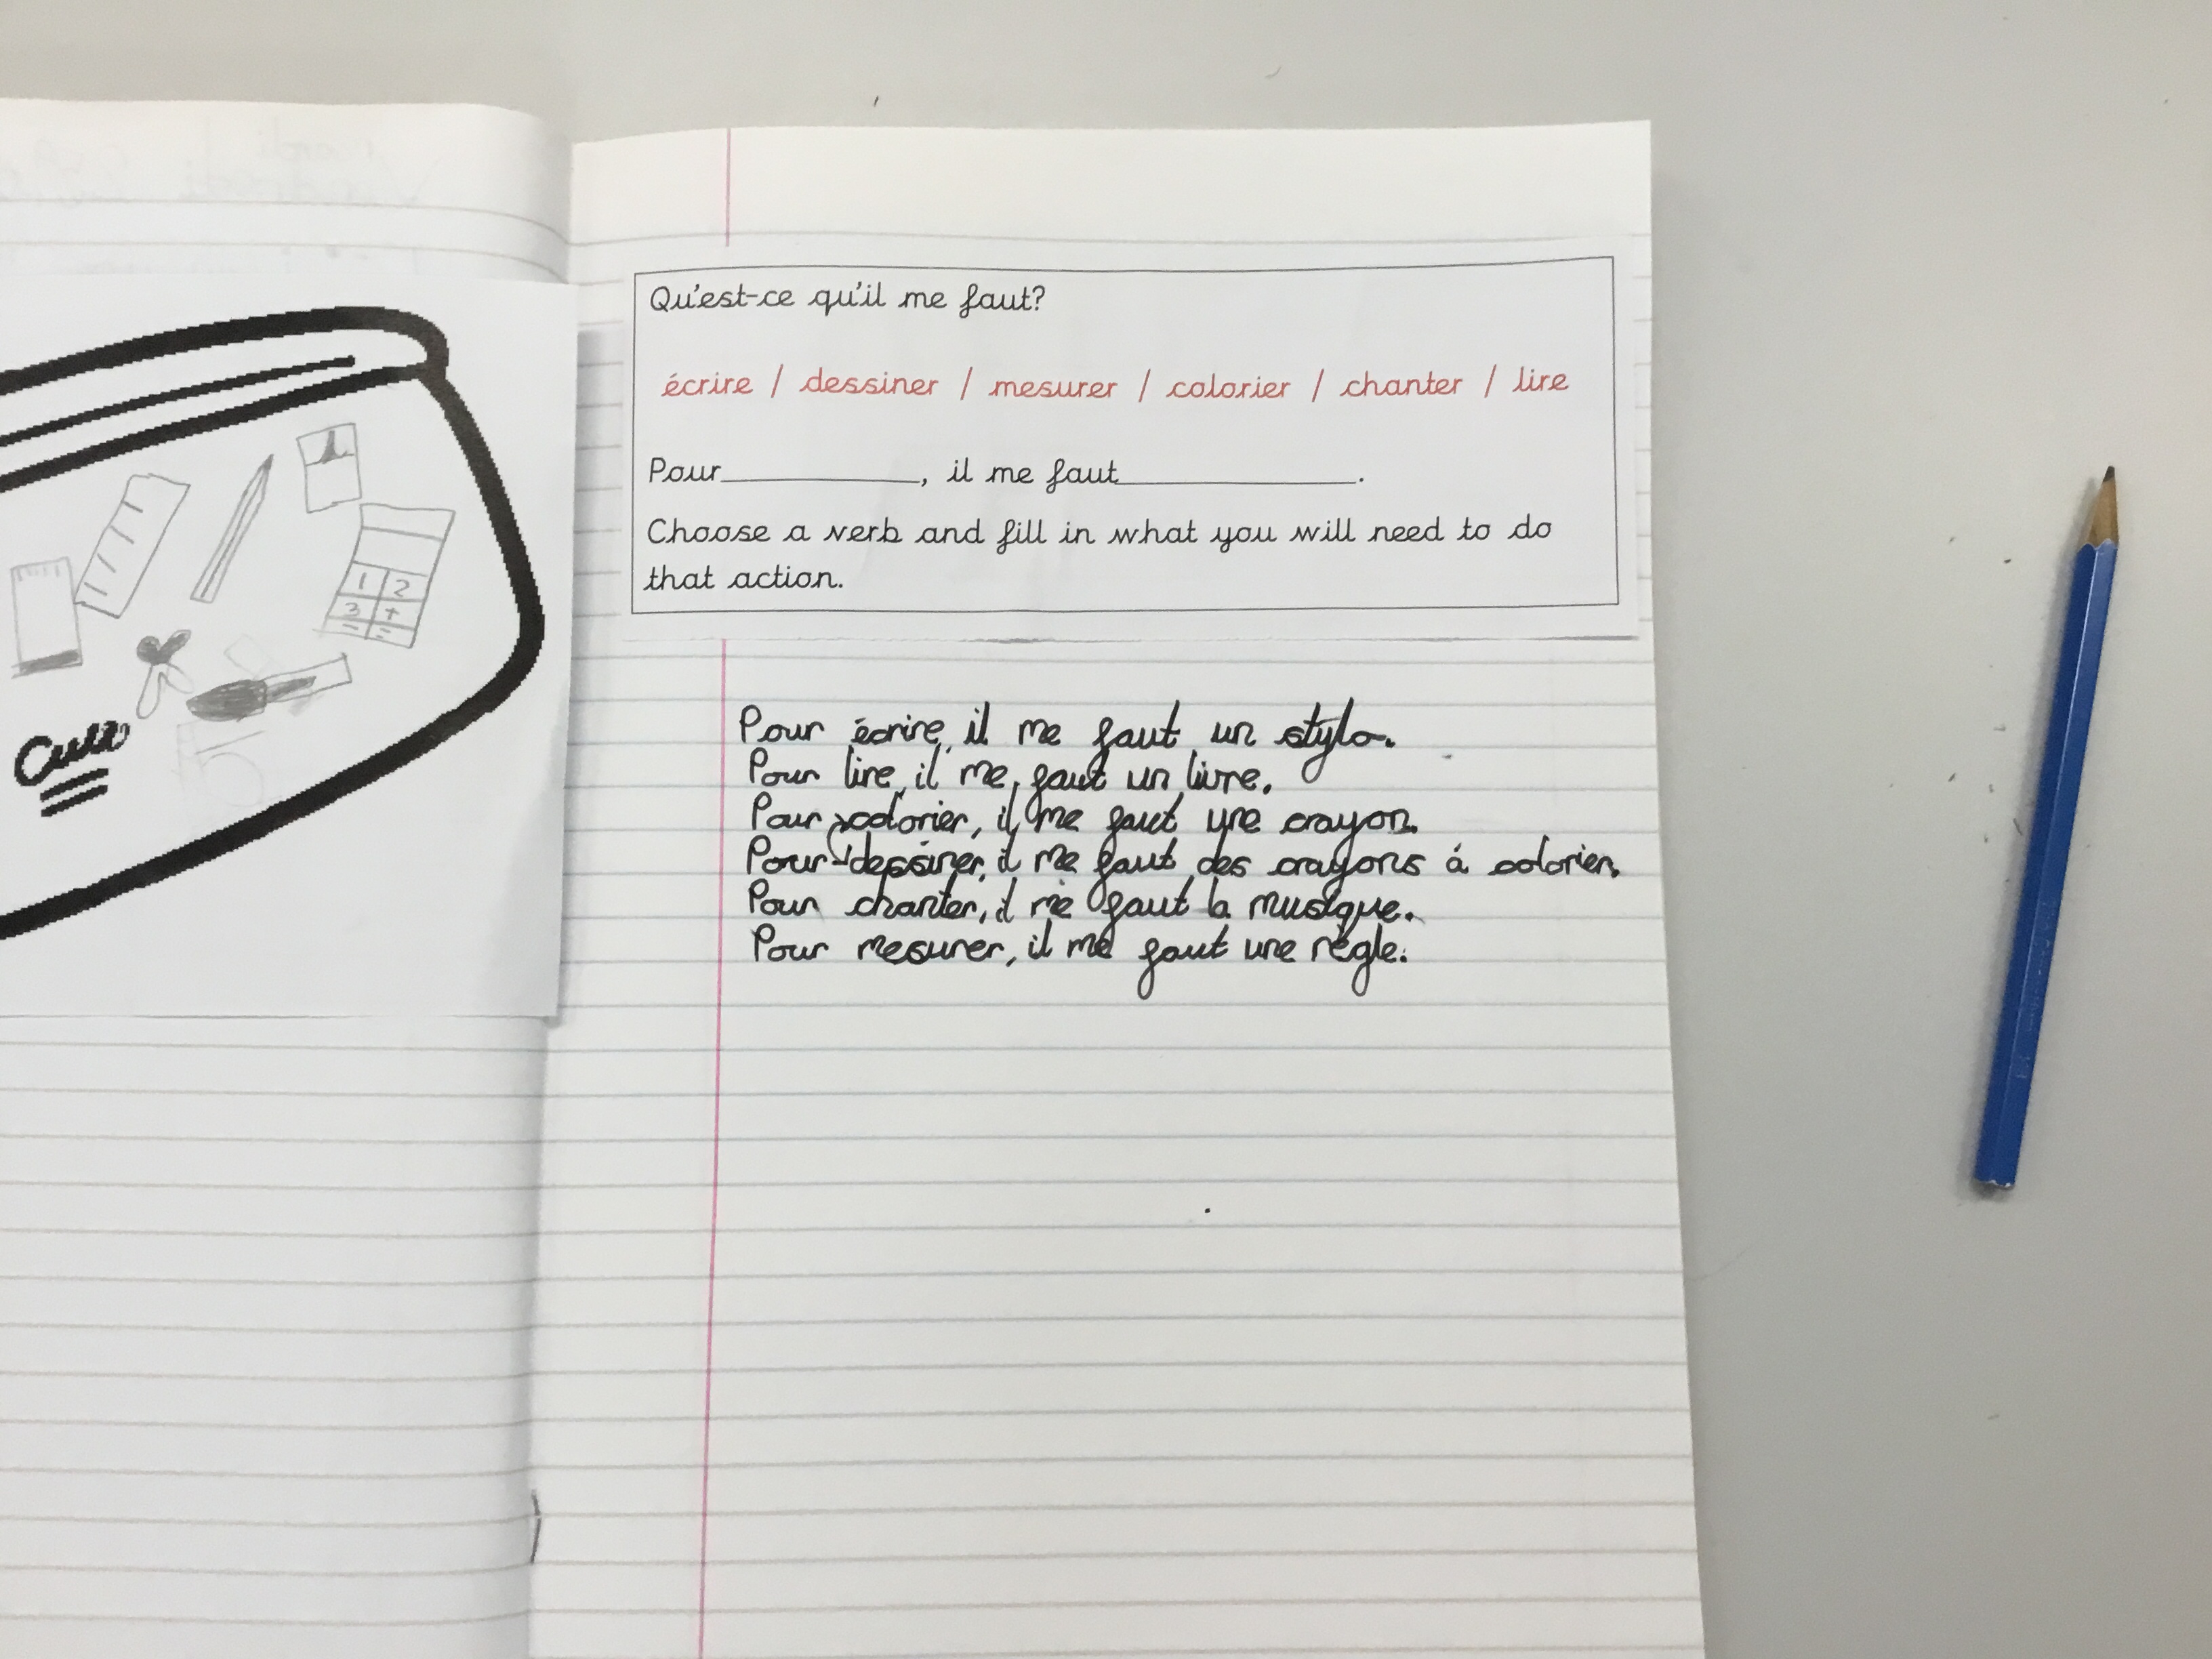 Qu'est-ce qu'il me faut?
écrire / dessiner / mesurer / colorier / chanter / lire
Pour__________, il me faut____________.
Choose a verb and fill in what you will need to do
that action.
1 2
3 +
Pour écrire, il me faut un stylo.
Pour lire, il me faut un livre.
Pour colorier, il me faut une crayon.
Pour dessiner, il me faut des crayons á colorier.
Pour chanter, il me faut la musique.
Pour mesurer, il me faut une régle.